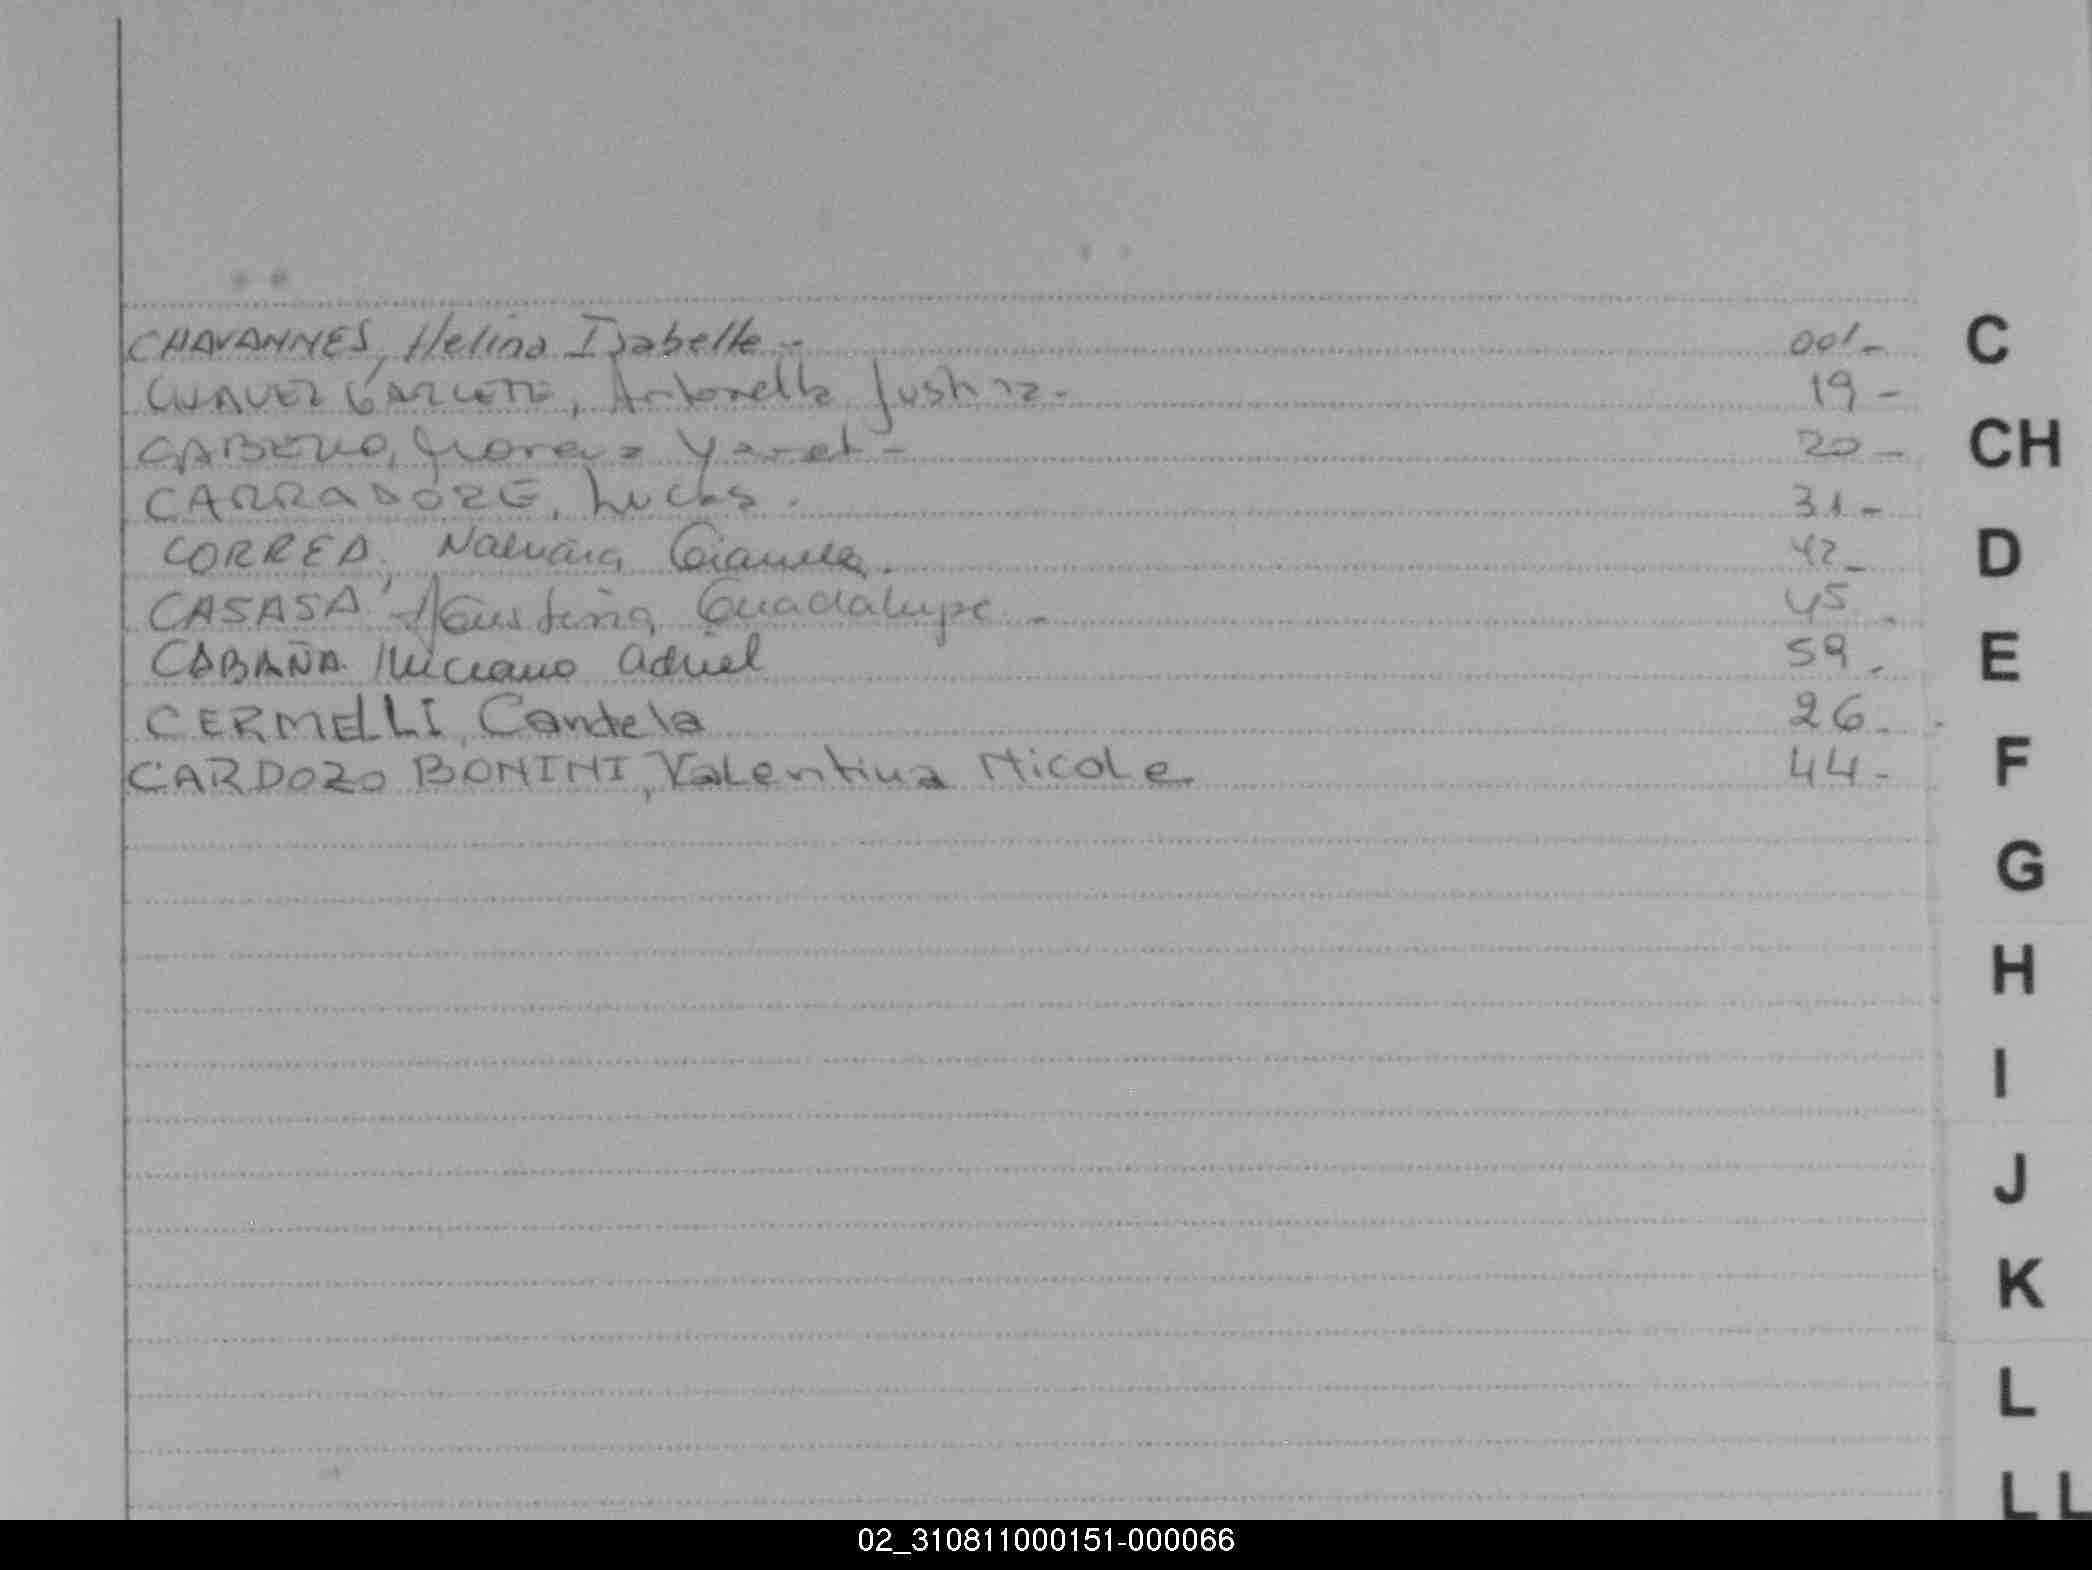 CHAVANNES, Helina Isabelle - 001-
CHAVEZ GARCETE, Antonella Justina - 19 -
Yanet - 20 -
CARRADORE, Lucas. 31 -
CORREA, Nahiara Gianella. 42 -
CASASA Agustina Guadalupe - 45 -
CABAÑA Luciano Adriel 59 -
CERMELLI, Candela 26 -
CARDOZO BONINI, Valentina Nicole 44 -
C
CH
D
E
F
G
H
I
J
K
L
LL
02_310811000151-000066